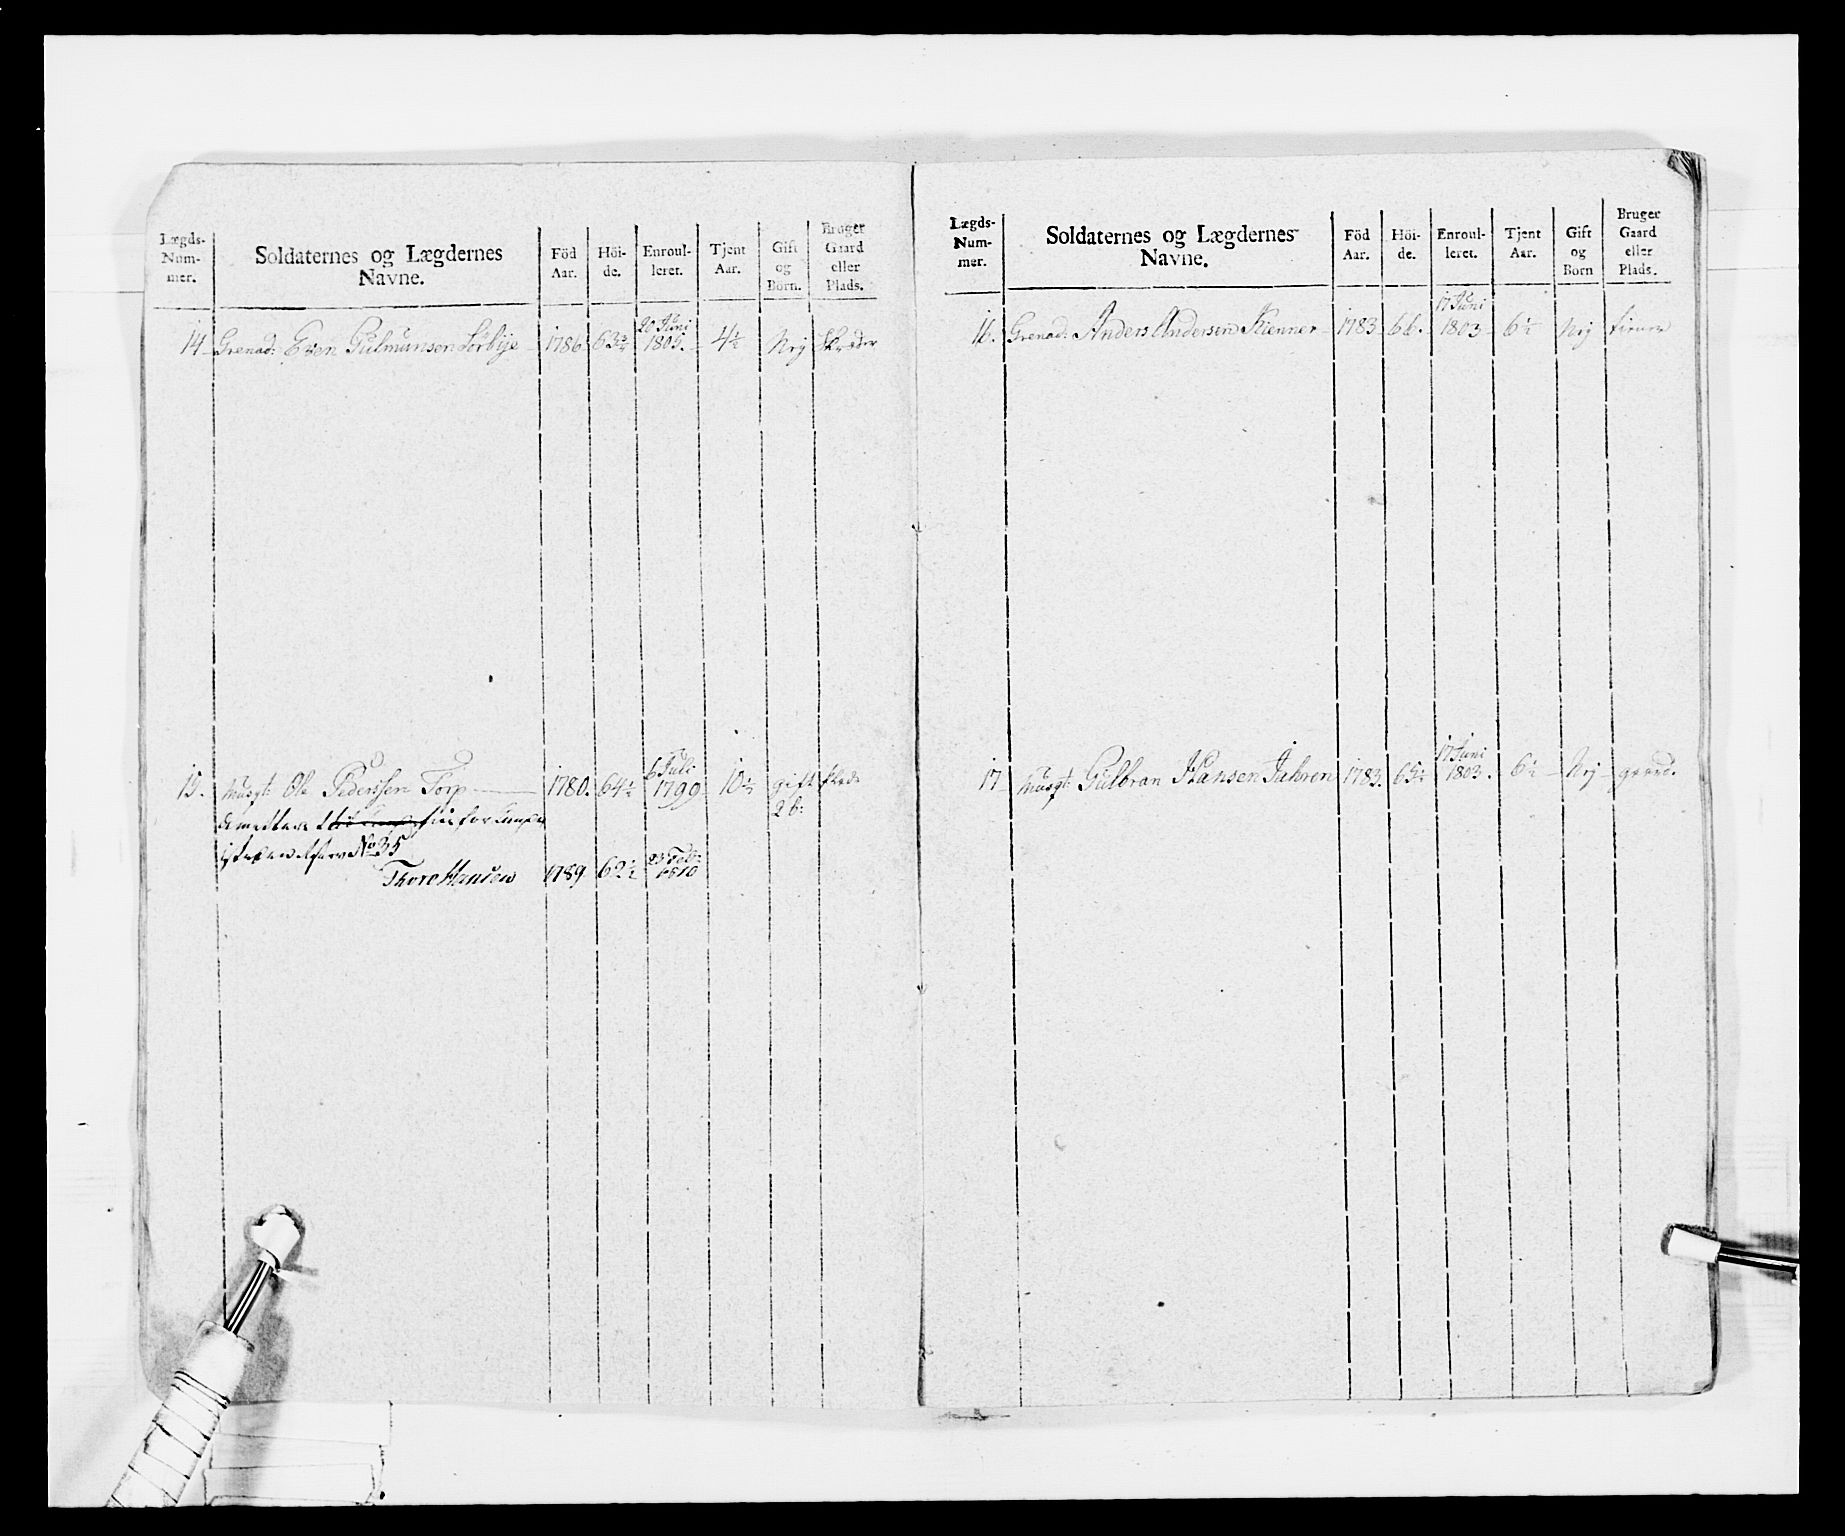 Lægds-Num-mer. Soldaternes og Lægdernes Navne. Föd Aar. Höi-de. Enroul-leret. Tjent Aar. Gift og Börn. Bruger Gaard eller Plads.
20 Juni
14 Grenad: Even Gulmunsen Sørbye 1786 63¾ 1805. 4½ Nej
6 Juli
15. Musqt: Ole Pederssen Torp 1780. 64½ 1799 10½ gift Plads
2 b:
No 35
23 Feb:
Thore Hansen 1789 62½ 1810
Lægds-Num-mer. Soldaternes og Lægdernes Navne. Föd Aar. Höi-de. Enroul-leret. Tjent Aar. Gift og Börn Bruger Gaard eller Plads.
17 Juni
16. Grenad: Anders Andersen Kienner 1783 66. 1803 6½ Nej
17 Juni
17 Musqt: Gulbran Hansen Jahren 1783. 65½ 1803. 6½ Nej gaard.